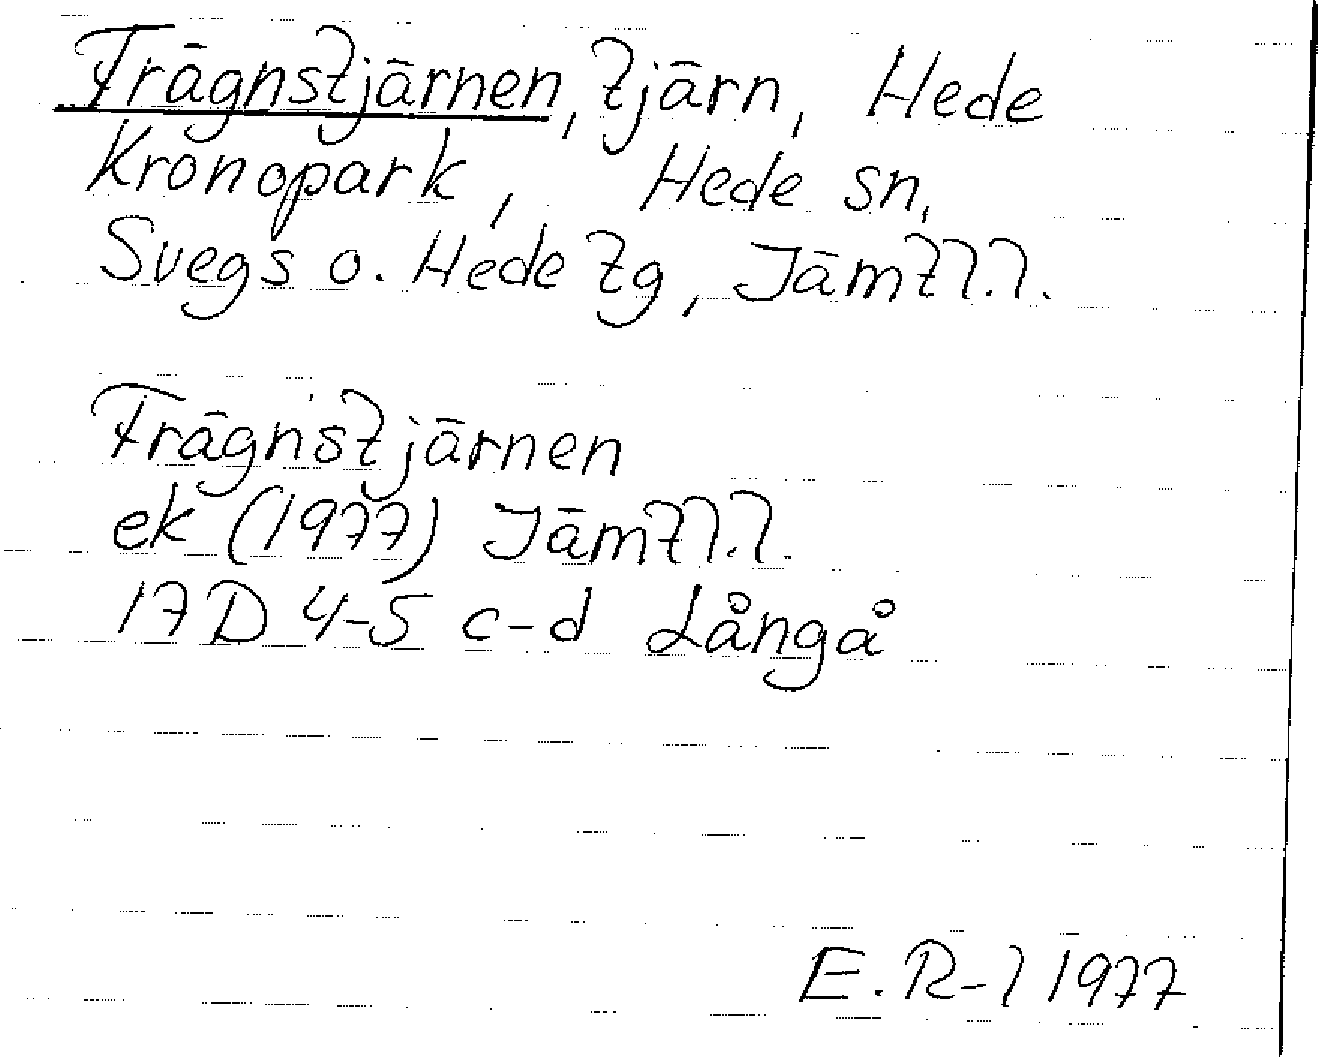 Frägnstjärnen, tjärn, Hede
Kronopark, Hede sn,
Svegs o. Hede tg, Jämtl.l.
Frägnstjärnen
ek (1977) Jämtl.l.
17D 4-5 c-d Långå
E. R-l 1977